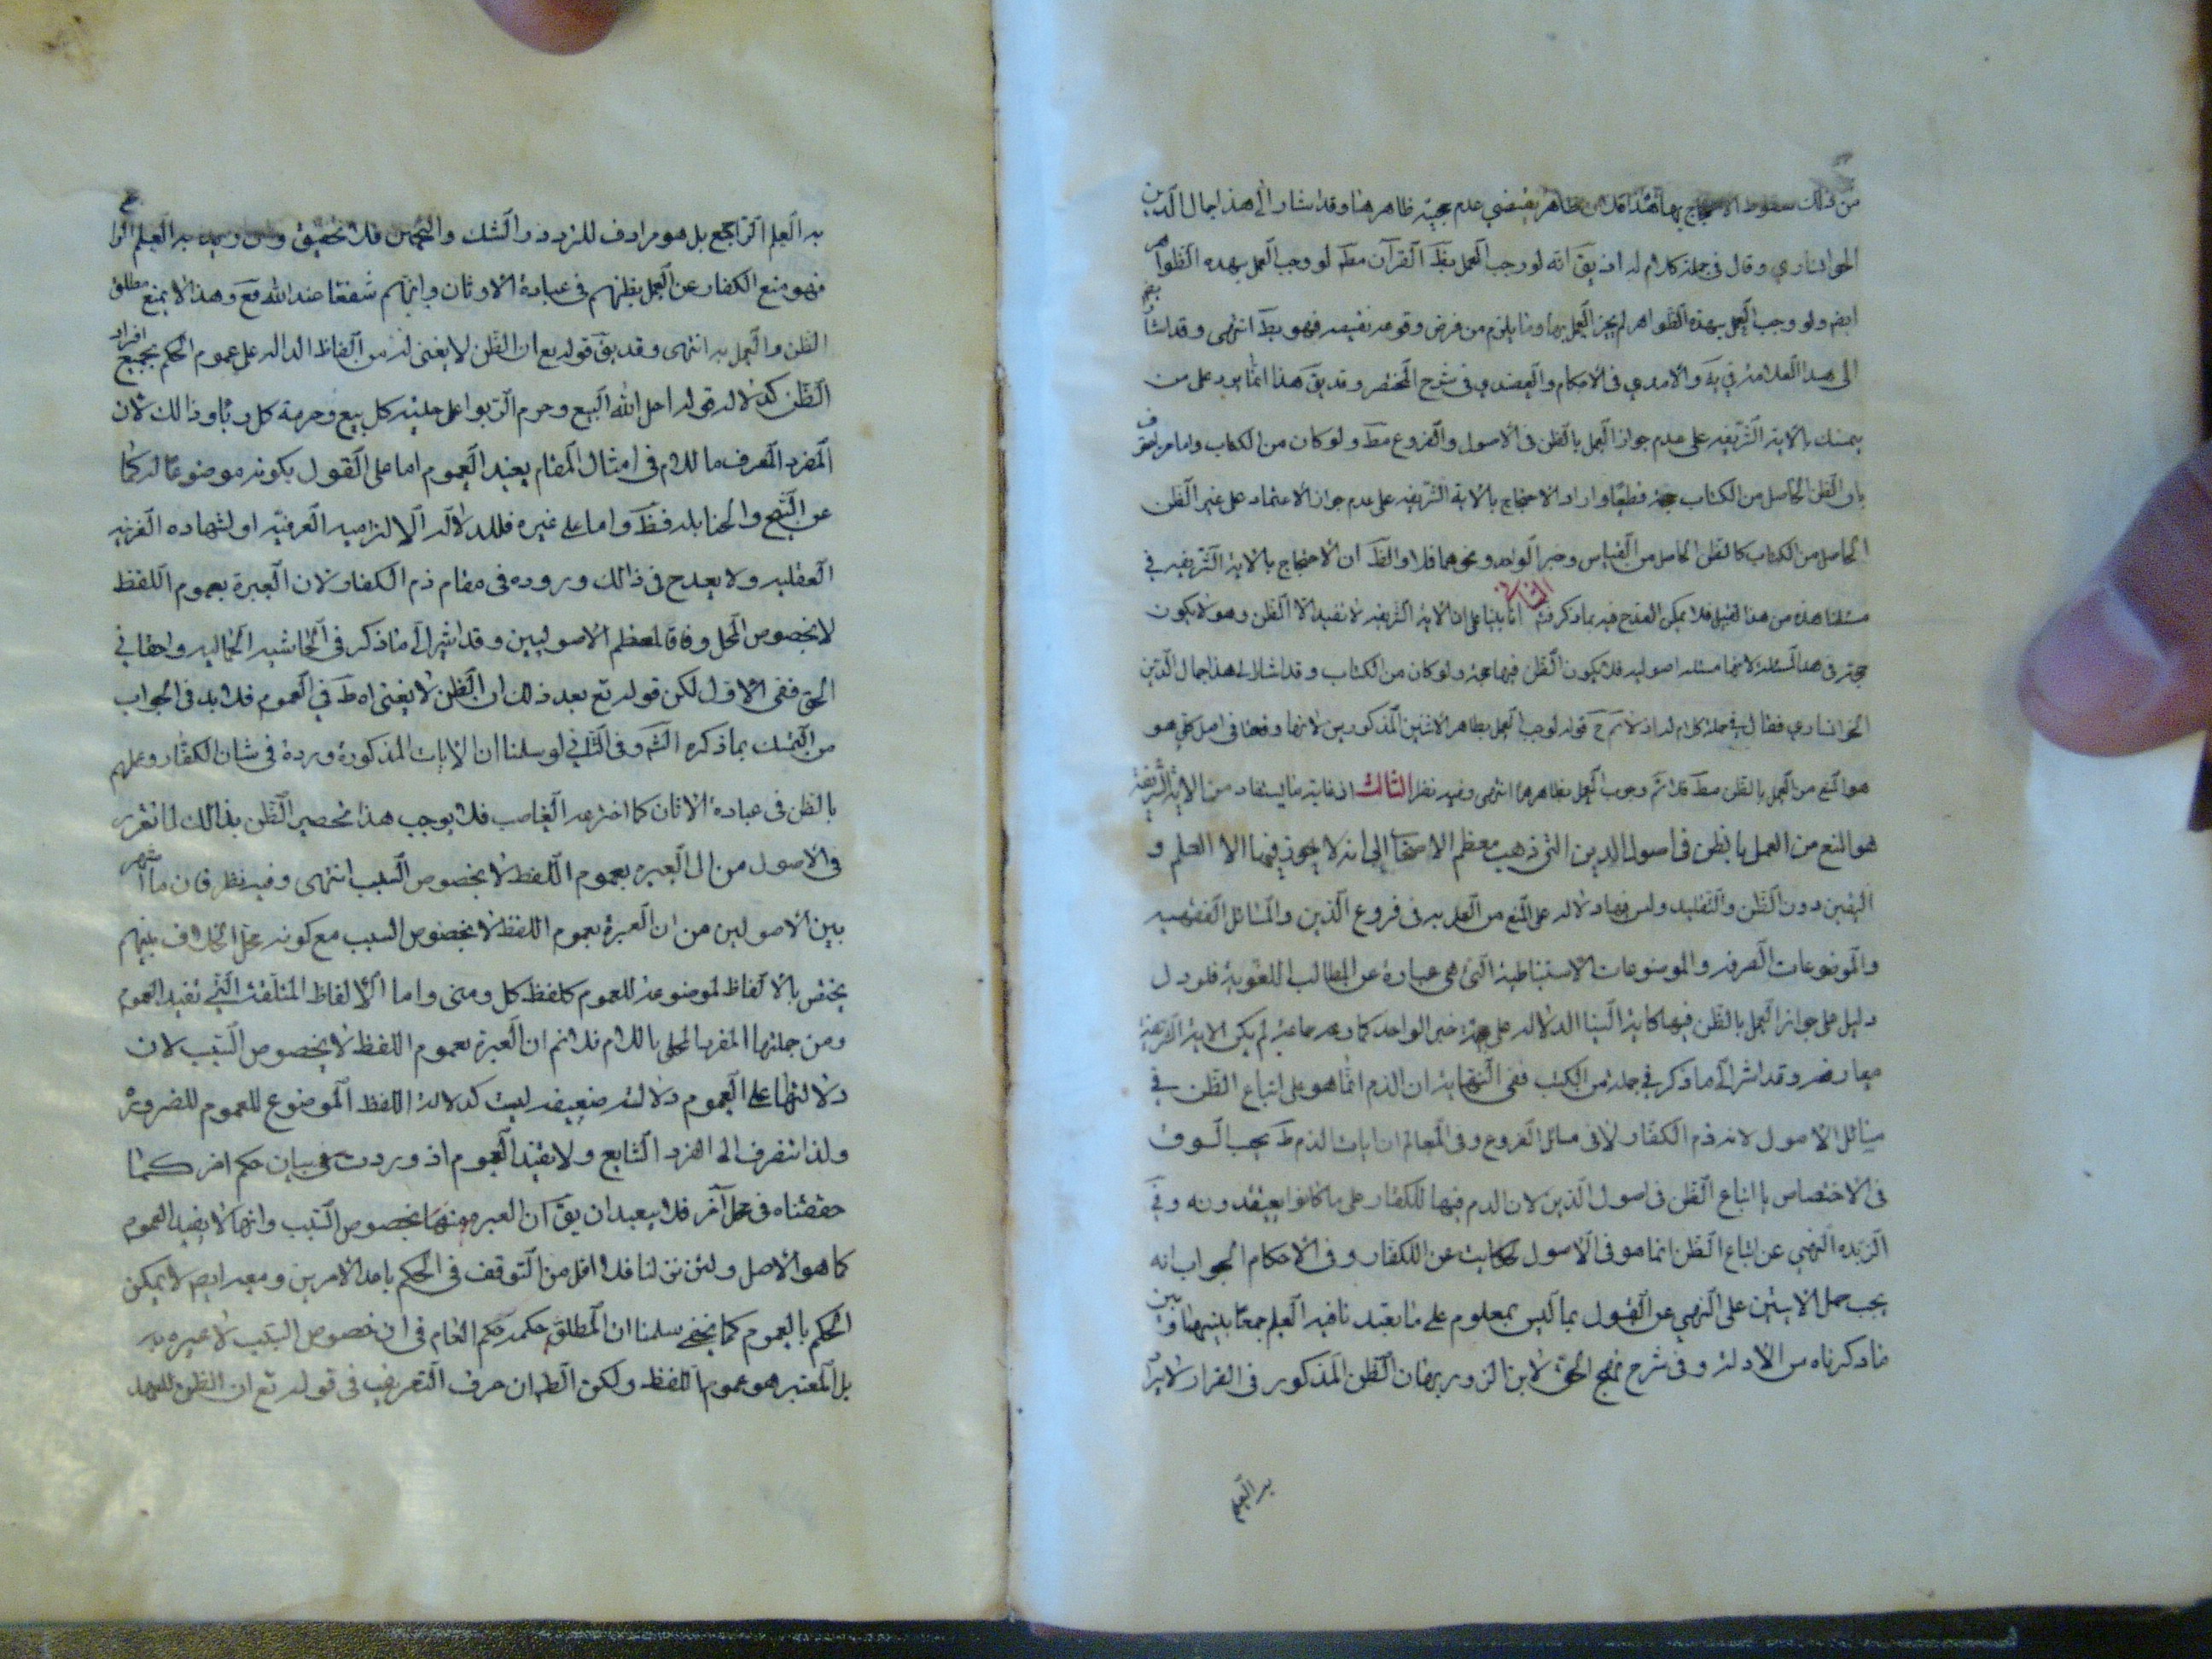 من ذلك سقوط الاحتجاج بها فتدبر ظاهر يقتضي عدم حجية ظاهرها وقد اشار الى هذا جمال الدين
الخوانساري وقال في جملة كلام له اذ يق انه لو وجب العمل بظ القرآن مط لو وجب العمل بهذه الظواهر
ايضم ولو وجب العمل بهذه الظواهر لم يجز العمل بها وما يلزم من فرض وقوعه نقيضه فهو بط انتهى وقد اشار
الى هذا العلامة في يه والامدي في الاحكام والعضدي في شرح المختصر وقد يق هذا انما يرد على من
يتمسك بالاية الشريفة على عدم جواز العمل بالظن في الاصول والفروع مط ولو كان من الكتاب واما من اعترف
بان الظن الحاصل من الكتاب حجة قطعا واراد الاحتجاج بالاية الشريفة على عدم جواز الاعتماد على غير الظن
الحاصل من الكتاب كالظن الحاصل من القياس وخبر الواحد ونحوهما فلا والظ ان الاحتجاج بالاية الشريفة في
مسئلتنا هذه من هذا القبيل فلا يمكن القدح فيه بما ذكر فتم الثاني انا بينا على ان الاية الشريفة لا تفيد الا الظن وهو لا يكون
حجة في هذا المسئلة لانها مسئلة اصولية فلا يكون الظن فيها حجة ولو كان من الكتاب وقد اشار الى هذا جمال الدين
الخوانساري فقال في جملة كلام له اذ لا نم ح قوله لوجب العمل بظاهر الاثنين المذكورين لانها وقعتا في اصل كلي هو
هو المنع من العمل بالظن مط فلا نم وجوب العمل بظاهرها انتهى وفيه نظر الثالث ان غاية ما يستفاد من الاية الشريفة
هو المنع من العمل بالظن في اصول الدين التي ذهب معظم الاصحاب الى انه لا يجوز فيها الا العلم و
اليقين دون الظن والتقليد وليس فيها دلالة على المنع من العمل به في فروع الدين والمسائل الفقهية
والموضوعات الصرفة والموضوعات الاستنباطية التي هي عبارة عن المطالب اللغوية فلو دل
دليل على جواز العمل بالظن فيها كاية النبا الدالة على حجية خبر الواحد كما زعمه جماعة لم يكن الاية الشريفة
معارضه وقد اشير الى ما ذكر في جملة من الكتب ففي النهاية ان الذم انما هو على اتباع الظن في
مسائل الاصول لانه ذم الكفار لا في مسائل الفروع وفي المعالم ان ايات الذم ظ بحسب السوق
في الاختصاص باتباع الظن في اصول الدين لان الذم فيها للكفار على ما كانوا يعتقدونه وفي
الزبدة النهي عن اتباع الظن انما هو في الاصول حكايت عن الكفار وفي الاحكام الجواب انه
يجب حمل الايتين على النهي عن القول بما ليس بمعلوم على ما تعبد نا فيه العلم جمعا بينهما وبين
ما ذكرناه من الادلة وفي شرح نهج الحق لابن الزوربهان الظن المذكور في القران لا يراد
به العلم
به العلم الراجح بل هو مرادف للتردد والشك والتخمين فلا تحقيق وان اريد به العلم الرا
فهو منع الكفار عن العمل بظنهم في عبادة الاوثان وانهم شفعا عند الله تع وهذا لا يمنع مطلق
الظن والعمل به انتهى وقد يق قوله تع ان الظن لا يغني له من الفاظ الدالة على عموم الحكم بجميع افراد
الظن كدلالة قوله احل الله البيع وحرم الربوا على حلية كل بيع وحرمة كل ربا وذالك لان
المفرد المعرف باللام في امثال المقام يفيد العموم اما على القول بكونه موضوعا له كما
عن الشيخ والحنابلة فظ واما على غيره فللدلالة الالتزامية العرفية او لشهادة القرينة
العقلية ولا يقدح في ذالك وروده في مقام ذم الكفار لان العبرة بعموم اللفظ
لا بخصوص المحل وفاقا لمعظم الاصوليين وقد اشير الى ما ذكر في الحاشية الجمالية واحقاق
الحق ففي الاول لكن قوله تع بعد ذلك ان الظن لا يغني اه ظ في العموم فلا بد في الجواب
من التمسك بما ذكره الشم وفي الثاني لو سلمنا ان الايات المذكورة وردة في شان الكفار وعملهم
بالظن في عبادة الاثان كما اخترعه الغاصب فلا يوجب هذا تخصيص الظن بذالك لما تقرر
في الاصول من ان العبرة بعموم اللفظ لا بخصوص السبب انتهى وفيه نظر فان ما اشتهر
بين الاصولين من ان العبرة بعموم اللفظ لا بخصوص السبب مع كونه محل الخلاف بينهم
يختص بالالفاظ الموضوعة للعموم كلفظ كل ومتى واما الالفاظ المطلقة التي تفيد العموم
ومن جملتها المفرد المحلى باللام فلا نم ان العبرة بعموم اللفظ لا بخصوص السبب لان
دلالتها على العموم دلالة ضعيفة ليت كدلالة اللفظ الموضوع للعموم للضرورة
ولذا تنصرف الى الفرد الشايع ولا يفيد العموم اذ وردت في بيان حكم اخر كما
حققناه في محل آخر فلا يبعد ان يق ان العبرة منها بخصوص السبب وانها لا يفيد العموم
كما هو الاصل ولئن تنزلنا فلا اقل من التوقف في الحكم باحد الامرين ومعه ايضم لا يمكن
الحكم بالعموم كما يخفى سلمنا ان المطلق حكمه حكم العام في ان خصوص السبب لا عبرة به
بل المعتبر هو عموم اللفظ ولكن الظ ان حرف التعريف في قوله تع ان الظن للعهد